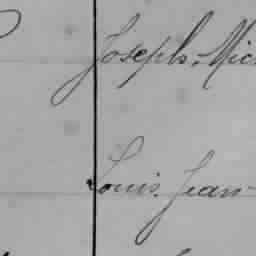 Joseph, Mic
Louis Jean-